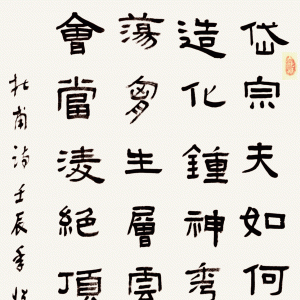 岱宗夫如何
造化鍾神秀
蕩胷生層雲
會當淩絕頂
杜甫詩壬辰季